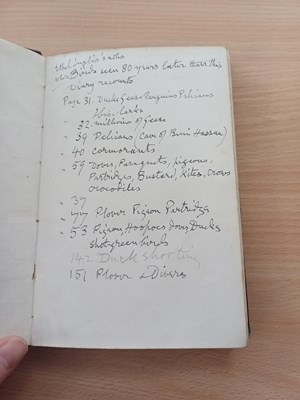 Birds seen 80 years later than this
Diary records
Page 31. Ducks Geese Penguins Pelicans
Ibis. larks
" 32. millions of Geese
" 39 Pelicans, Cave of Beni Hassan)
" 40 cormorants
" 59 Doves, Paroquets, pigeons,
Partridges, Bustard, Kites, crows
crocodiles
" 37
" 77 Plover Pigeon Partridge
" 53 Pigeon, Hoopoes Doves, Ducks
shot green birds
142 Duck shooting
151 Plover & Divers